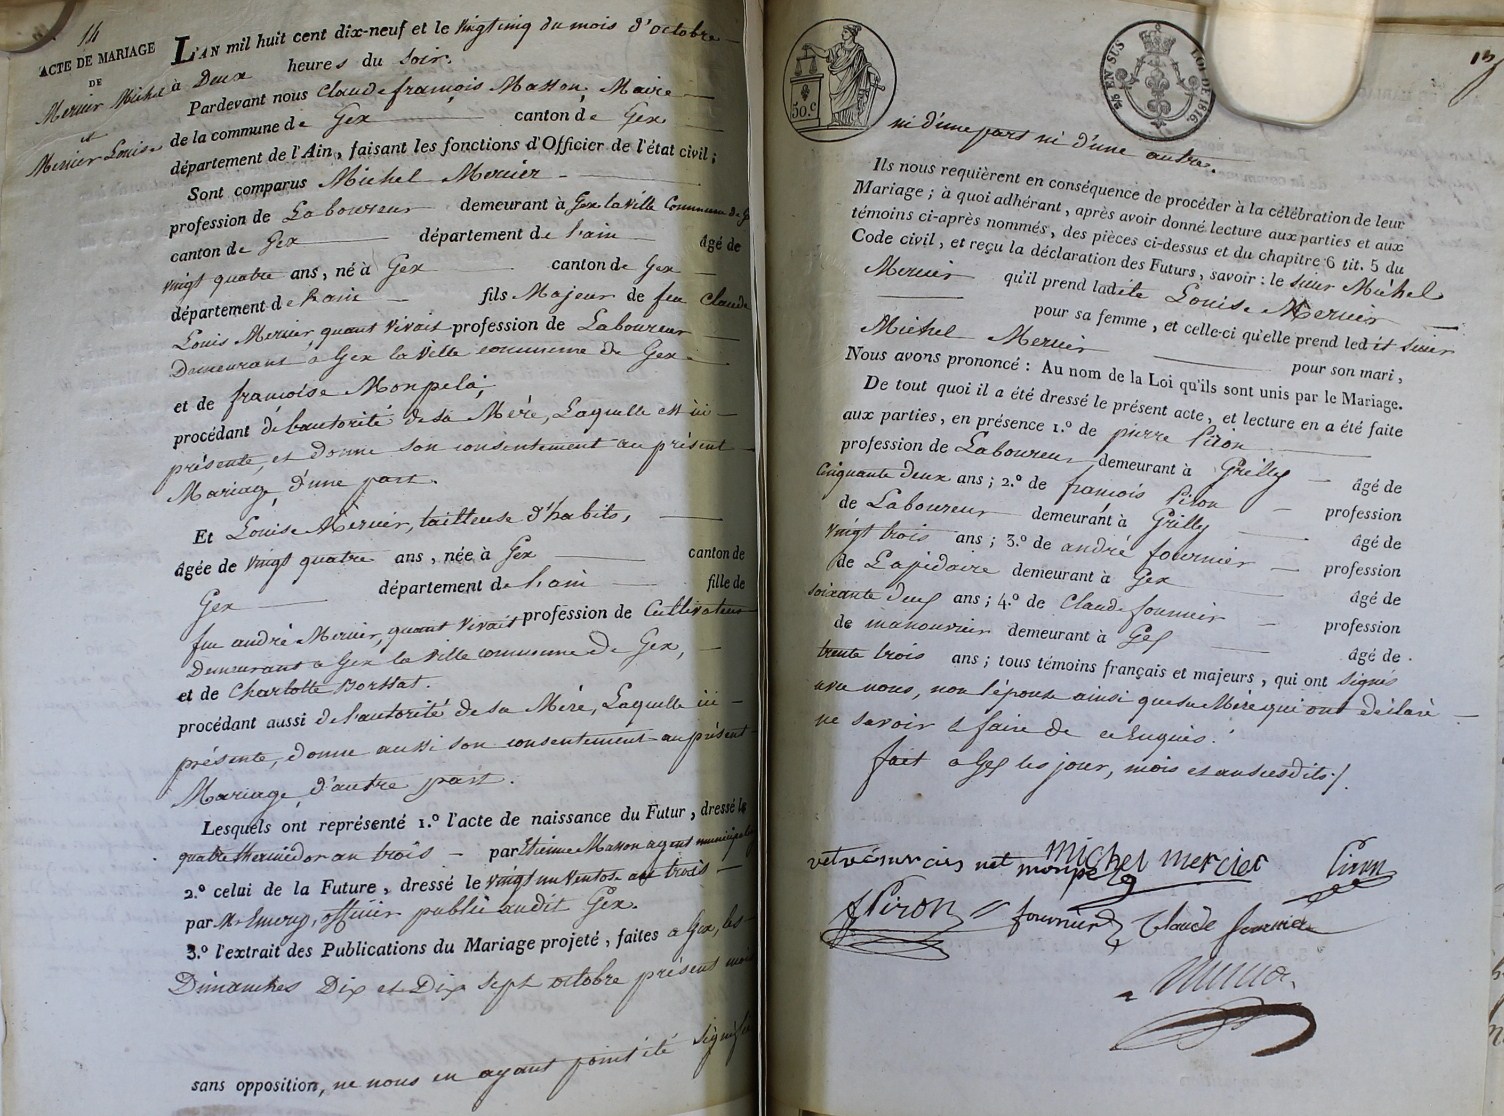 14
ACTE DE MARIAGE
DE
Mercier Michel
et
Mercier Louise
L'AN mil huit cent dix-neuf et le vingtcinq du mois d'octobre
à Deux heures du soir.
Pardevant nous Claude françois Masson, Maire
de la commune de Gex canton de Gex
département de l'Ain, faisant les fonctions d'Officier de l'état civil;
Sont comparus Michel Mercier
profession de Laboureur demeurant à Gex la ville Commune de Gex
canton de Gex département de l'ain âgé de
vingt quatre ans, né à Gex canton de Gex
département de l'ain fils Majeur de feu Claude
Louis Mercier, quant vivait profession de Laboureur
Demeurant à Gex la ville commune de Gex
et de françoise Monpela,
procédant de l'autorité de sa Mère, Laquelle est ici
présente, et donne son consentement au présent
Mariage, d'une part.
Et Louise Mercier, tailleuse d'habits,
âgée de vingt quatre ans, née à Gex canton de
Gex département de l'ain fille de
feu andré Mercier, quant vivait profession de Cultivateur
Demeurant à Gex la ville commune de Gex,
et de Charlotte Borssat.
procédant aussi de l'autorité de sa Mère, Laquelle ici
présente, donne aussi son consentement au présent
Mariage, d'autre part.
Lesquels ont représenté 1.º l'acte de naissance du Futur, dressé le
quatre thermidor an trois par Etienne Masson agent municipal
2.º celui de la Future, dressé le vingt un ventose an trois
par Mr Emery, officier public audit Gex.
3.º l'extrait des Publications du Mariage projeté, faites à Gex, les
Dimanches Dix et Dix sept octobre présent mois
sans opposition, ne nous en ayant point été signifié
13
50.c
EN SUS
LOI DE 1816.
ni d'une part ni d'une autre.
Ils nous requièrent en conséquence de procéder à la célébration de leur
Mariage; à quoi adhérant, après avoir donné lecture aux parties et aux
témoins ci-après nommés, des pièces ci-dessus et du chapitre 6 tit. 5 du
Code civil, et reçu la déclaration des Futurs, savoir: le sieur Michel
Mercier qu'il prend ladite Louise Mercier
pour sa femme, et celle-ci qu'elle prend ledit sieur
Michel Mercier pour son mari,
Nous avons prononcé: Au nom de la Loi qu'ils sont unis par le Mariage.
De tout quoi il a été dressé le présent acte, et lecture en a été faite
aux parties, en présence 1.º de pierre Piron
profession de Laboureur demeurant à Grilly âgé de
Cinquante deux ans; 2.º de françois Piron profession
de Laboureur demeurant à Grilly âgé de
vingt trois ans; 3.º de andré fournier profession
de Lapidaire demeurant à Gex âgé de
soixante deux ans; 4.º de Claude fournier profession
de manouvrier demeurant à Gex âgé de
trente trois ans; tous témoins français et majeurs, qui ont signés
avec nous, non l'épouse ainsi que sa Mère qui ont déclaré
ne savoir le faire de ce Enquis.
fait à Gex les jour, mois et an susdits./
michel mercier Piron
monpela
f Piron fournier Claude fournier